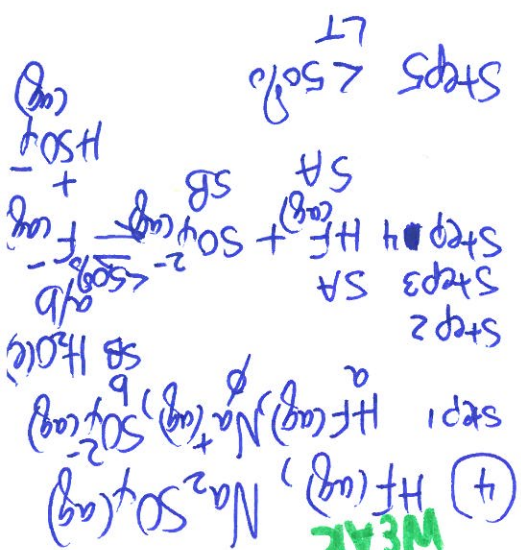 WEAK
④ HF(aq), Na₂SO₄(aq)
Step 1 HF(aq), Na⁺(aq), SO₄²⁻(aq)
a ∅ b
SB H₂O(l)
Step 2 a/b
Step 3 SA <50%
Step 4 HF(aq) + SO₄²⁻(aq) ⇌ F⁻(aq)
SA SB + HSO₄⁻(aq)
Step 5 < 50%
LT